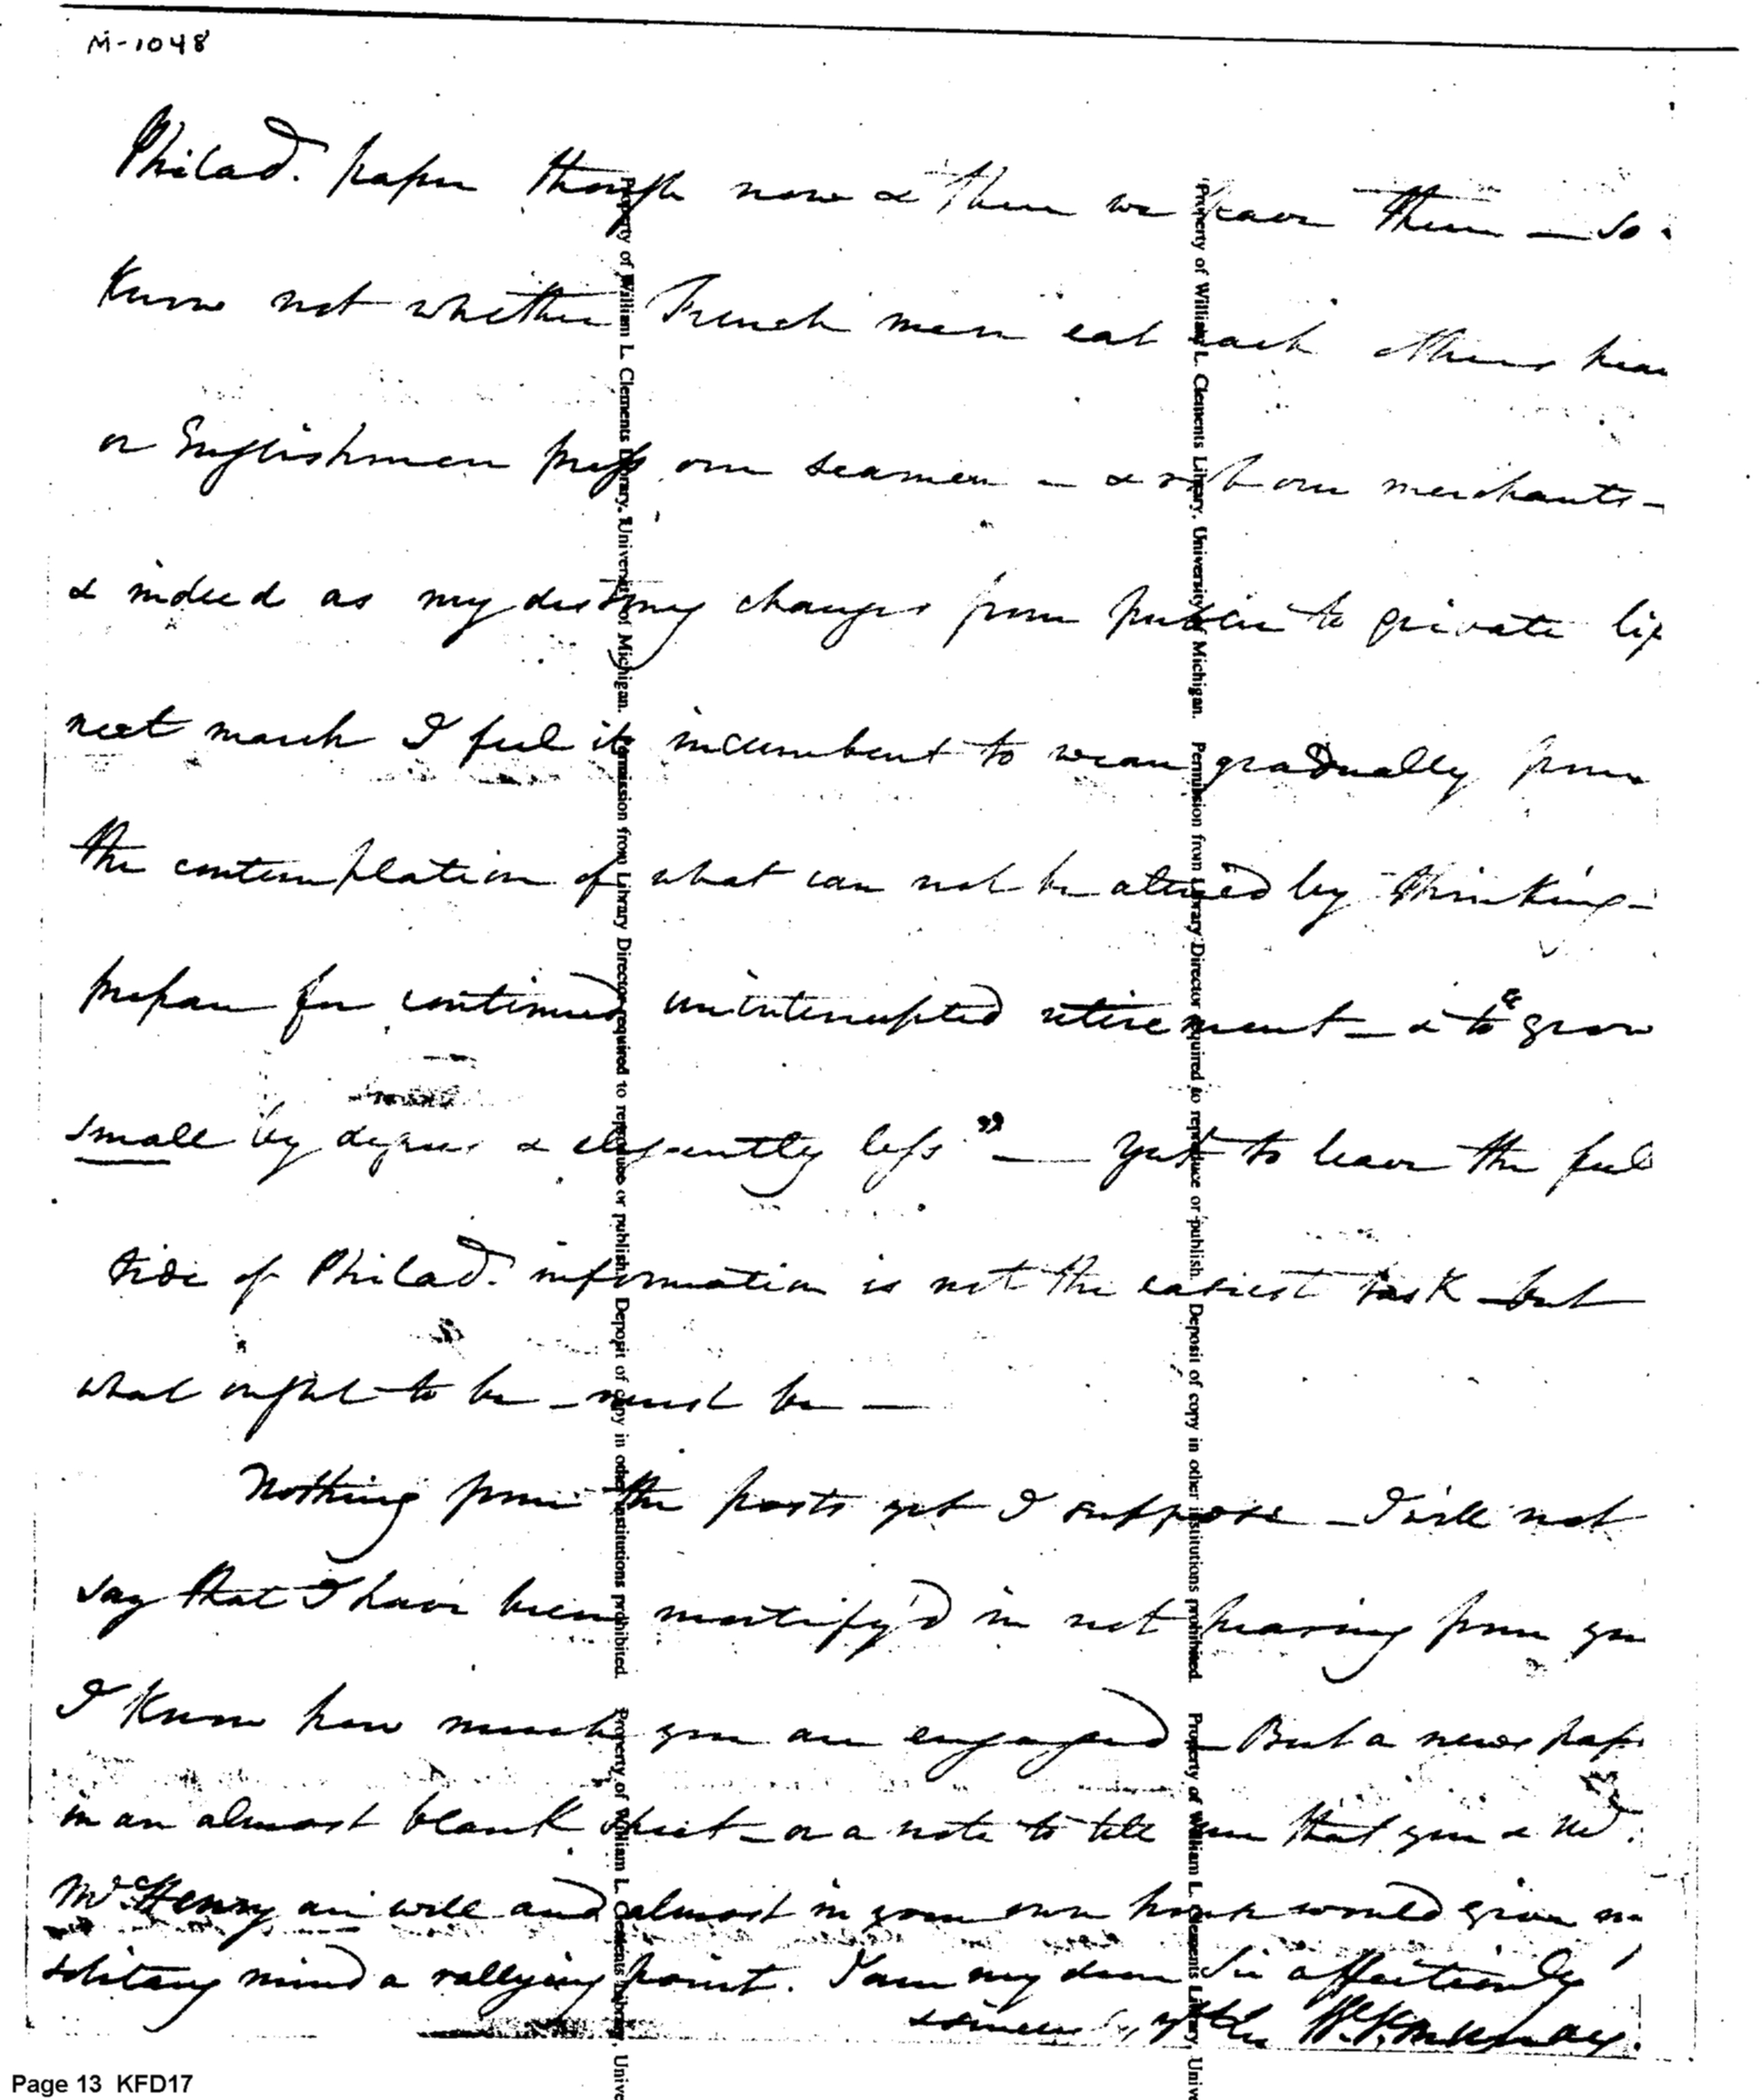 M-1048
Philad. paper though now & then we have them — so
Know not whether French men eat each others
or Englishmen press our seamen — & rob our merchants —
& indeed as my destiny changes from public to private life
next march I feel it incumbent to wean gradually from
the contemplation of what can not be altered by thinking —
prepare for continued uninterrupted retirement — & to “grow
small by degrees & elegantly less” — Yet to leave the full
tide of Philad. information is not the easiest task — but
what ought to be — must be —
Nothing from the posts yet I suppose — I will not
say that I have been mortify'd in not hearing from you
I Know how much you are engaged — But a news pape
in an almost blank sheet — or a note to tell me that you &
McHenry are well and almost in your own house would give
solitary mind a rallying point. I am my dear Sir affectionly
sincerely yrs W. V. Murray.
Property of William L. Clements Library, University of Michigan. Permission from Library Director required to reproduce or publish. Deposit of copy in other institutions prohibited. Property of William L. Clements Library, Unive
Property of William L. Clements Library, University of Michigan. Permission from Library Director required to reproduce or publish. Deposit of copy in other institutions prohibited. Property of William L. Clements Library, Univ
Page 13 KFD17